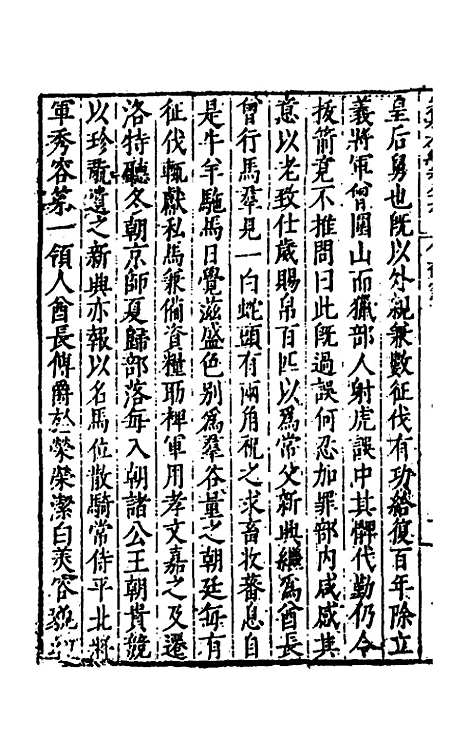 皇后舅也既以外親兼數征伐有功給復百年除立
義將軍曾圍山而獵部人射虎誤中其髀代勤仍令
拔箭竟不推問曰此既過誤何忍加罪部内咸感其
意以老致仕歲賜帛百匹以爲常父新興繼爲酋長
曾行馬羣見一白蛇頭有兩角祝之求畜牧蕃息自
是牛羊駞馬日覺滋盛色别爲羣谷量之朝廷每有
征伐輒獻私馬兼備資糧助裨軍用孝文嘉之及遷
洛特聽冬朝京師夏歸部落每入朝諸公王朝貴競
以珍翫遺之新興亦報以名馬位散騎常侍平北將
軍秀容第一領人酋長傳爵於榮榮潔白美容貌